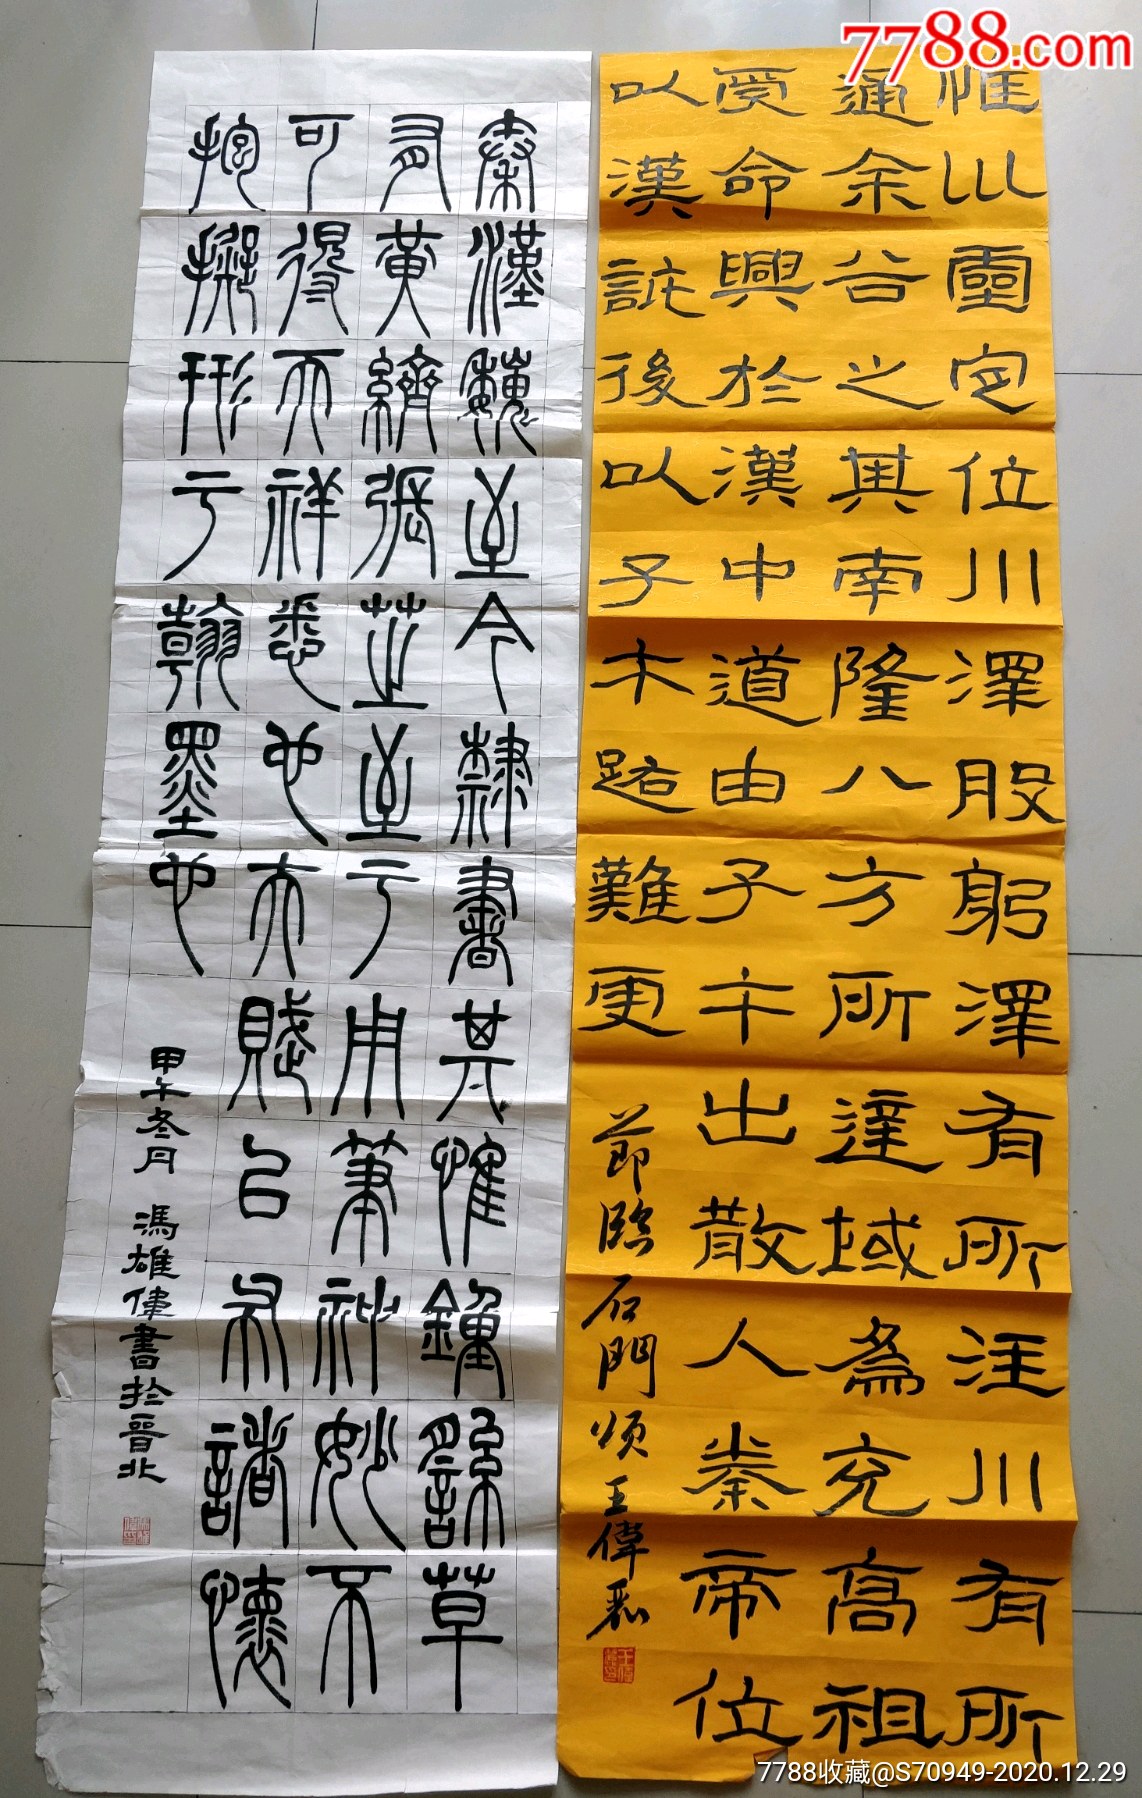 7788.com
惟巛靈定位川澤股躬澤有所注川有所
通余谷之其南隆八方所達域為充高祖
受命興於漢中道由子午出散人秦帝位
以漢詆後以子午路難更
節臨石門頌王偉
秦漢魏至今隸書其惟鍾繇草
有黃張芝至于用筆神妙不
可得而祥悉也夫賦以布諸懷
抱擬形于翰墨也
甲午冬月 馮雄偉書於晉北
7788收藏@S70949-2020.12.29